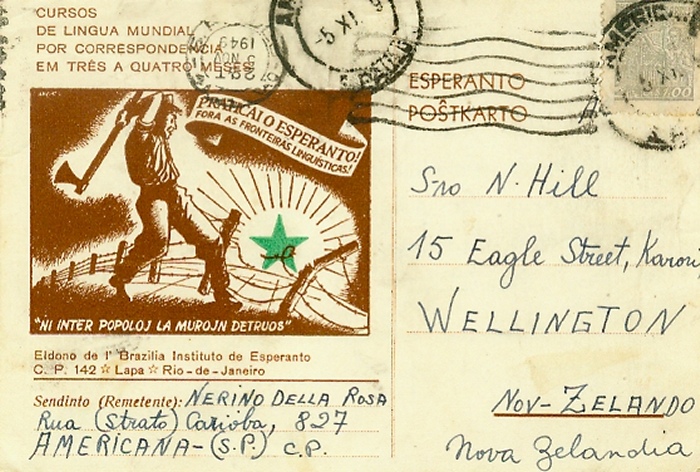 CURSOS
DE LINGUA MUNDIAL
POR CORRESPONDENCIA
EM TRÊS A QUATRO MESES
5 NOV
1949
-5 XI
AMERICANA
1,00
ESPERANTO
POŜTKARTO
PRATICAI O ESPERANTO!
FORA AS FRONTEIRAS LINGUÍSTICAS!
"NI INTER POPOLOJ LA MUROJN DETRUOS"
Eldono de l' Brazilia Instituto de Esperanto
C. P. 142 ☆ Lapa ☆ Rio-de-Janeiro
Sendinto (Remetente): NERINO DELLA ROSA
Rua (Strato) Carióba, 827
AMERICANA-(S.P.) C.P.
Sro N. Hill
15 Eagle Street, Karori
WELLINGTON
NOV-ZELANDO
Nova Zelandia